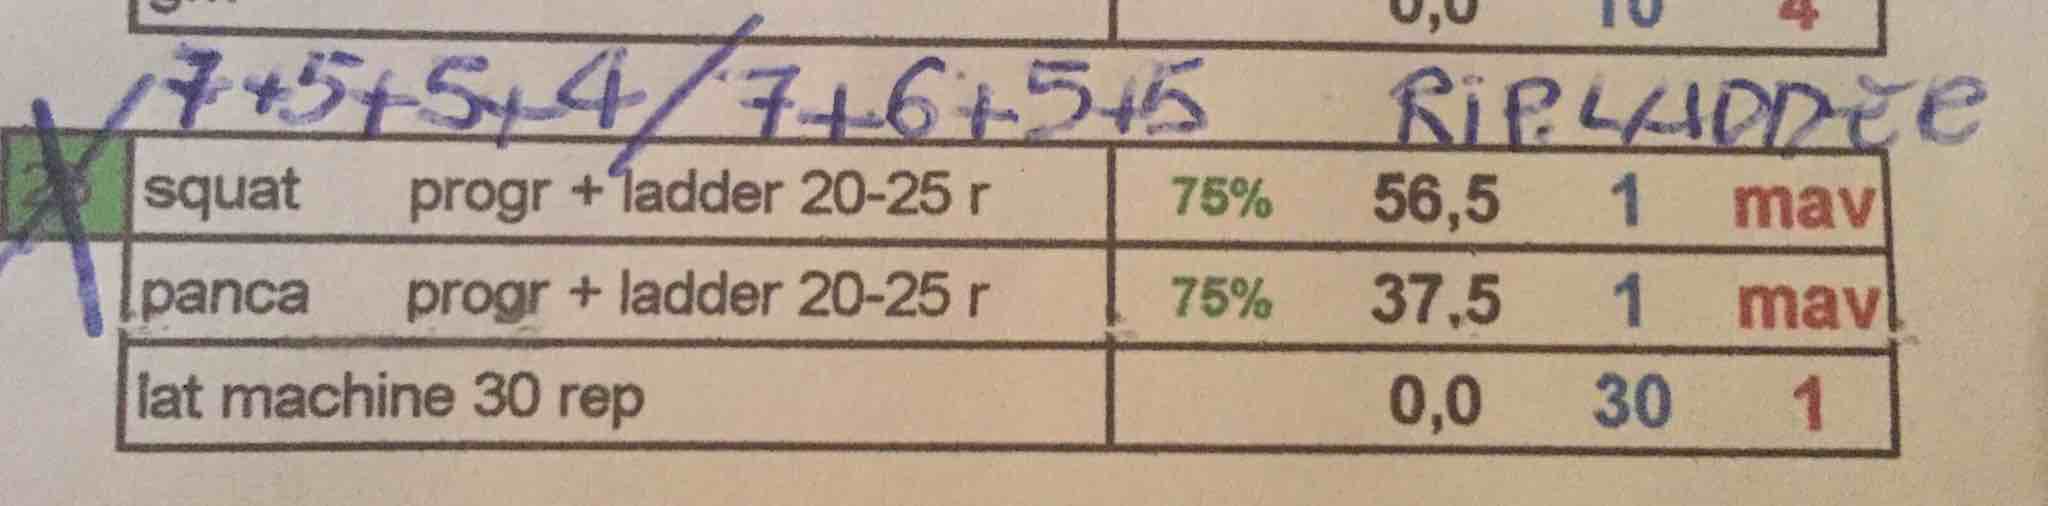 0,0 10 4
7+5+5+4/7+6+5+5 RiP. LADDER
squat progr + ladder 20-25 r 75% 56,5 1 mav
panca progr + ladder 20-25 r 75% 37,5 1 mav
lat machine 30 rep 0,0 30 1